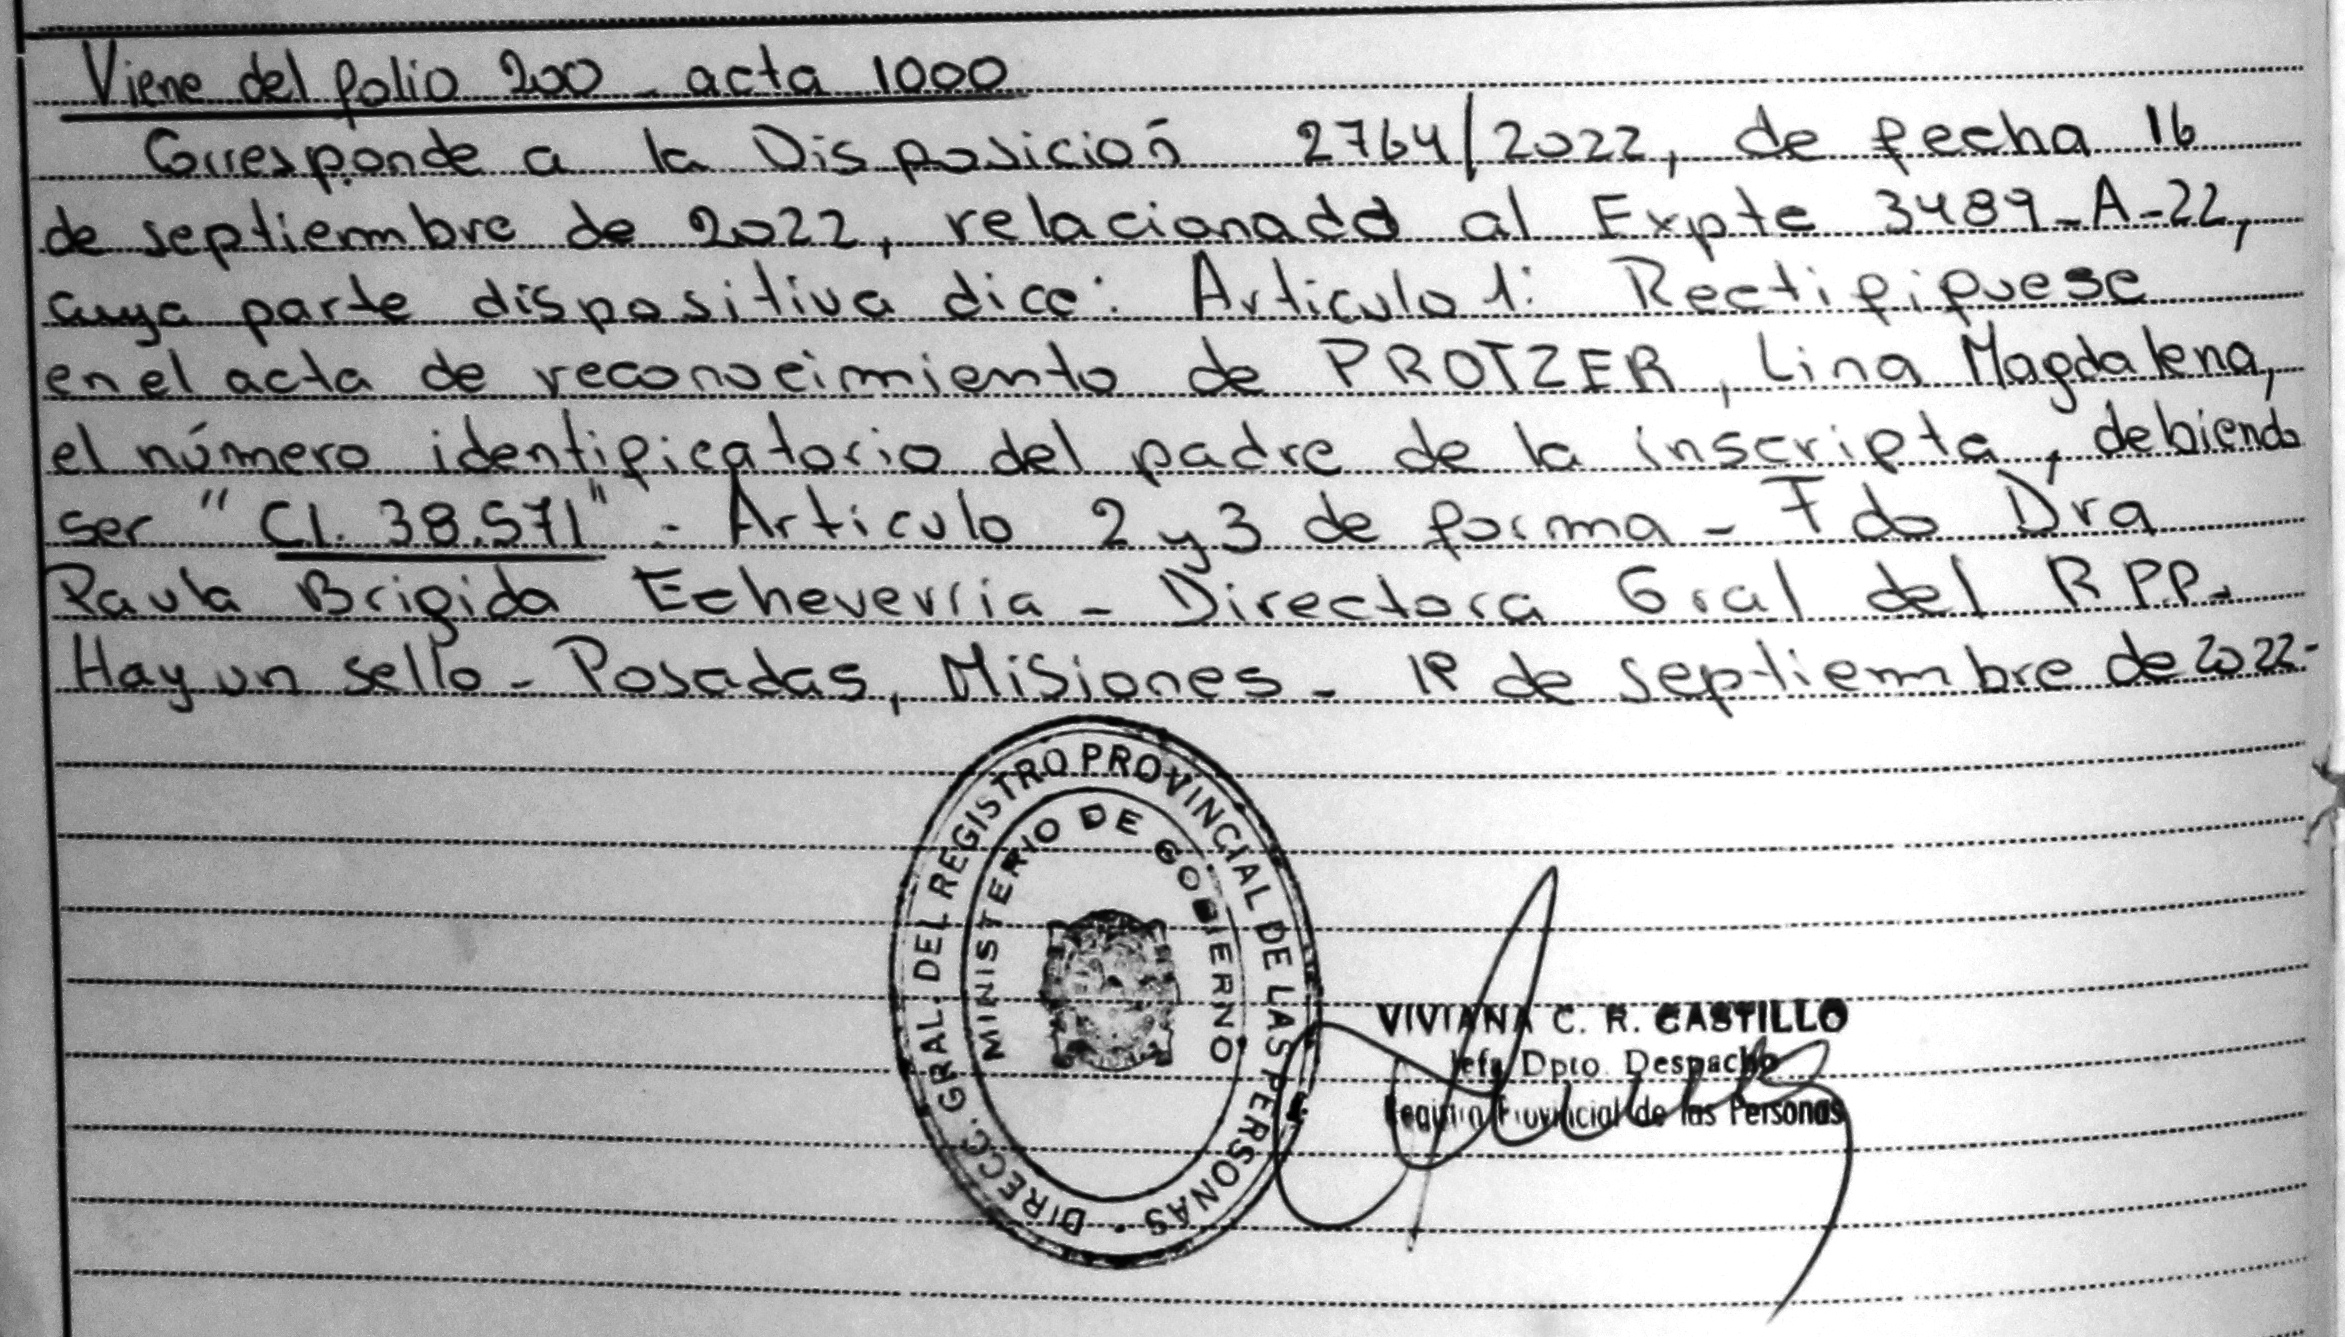 Viene del folio 200 - acta 1000
Corresponde a la Disposición 2764/2022, de fecha 16
de septiembre de 2022, relacionado al Expte 3489-A-22,
cuya parte dispositiva dice: Articulo 1: Rectifiquese
en el acta de reconocimiento de PROTZER, Lina Magdalena,
el número identificatorio del padre de la inscripta, debiendo
ser "CI. 38.571" - Articulo 2 y 3 de forma - Fdo Dra
Paula Brigida Echeverria - Directora Gral del RPP.
Hay un sello - Posadas, Misiones - de septiembre de 2022.-
DIRECC. GRAL. DEL REGISTRO PROVINCIAL DE LAS PERSONAS
MINISTERIO DE GOBIERNO
VIVIANA C. R. CASTILLO
Jefa Dpto. Despacho
Registro Provincial de las Personas